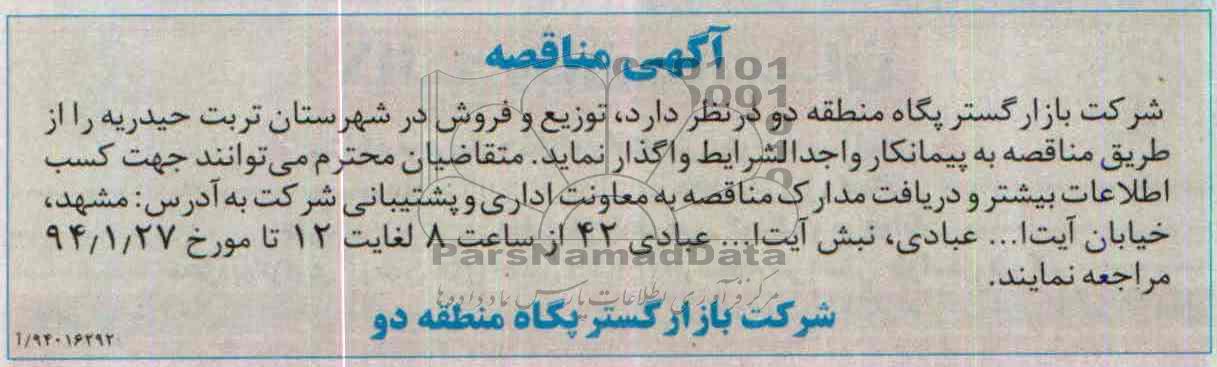 آگهی مناقصه
شرکت بازار گستر پگاه منطقه دو درنظر دارد، توزیع و فروش در شهرستان تربت حیدریه را از
طریق مناقصه به پیمانکار واجدالشرایط واگذار نماید. متقاضیان محترم می‌توانند جهت کسب
اطلاعات بیشتر و دریافت مدارک مناقصه به معاونت اداری و پشتیبانی شرکت به آدرس: مشهد،
خیابان آیت‌ا... عبادی، نبش آیت‌ا... عبادی ۴۲ از ساعت ۸ لغایت ۱۲ تا مورخ ۹۴٫۱٫۲۷
مراجعه نمایند.
ParsNamadData
مرکز فرآوری اطلاعات پارس نماد داده‌ها
شرکت بازار گستر پگاه منطقه دو
۹۴۰۱۶۲۹۲/آ